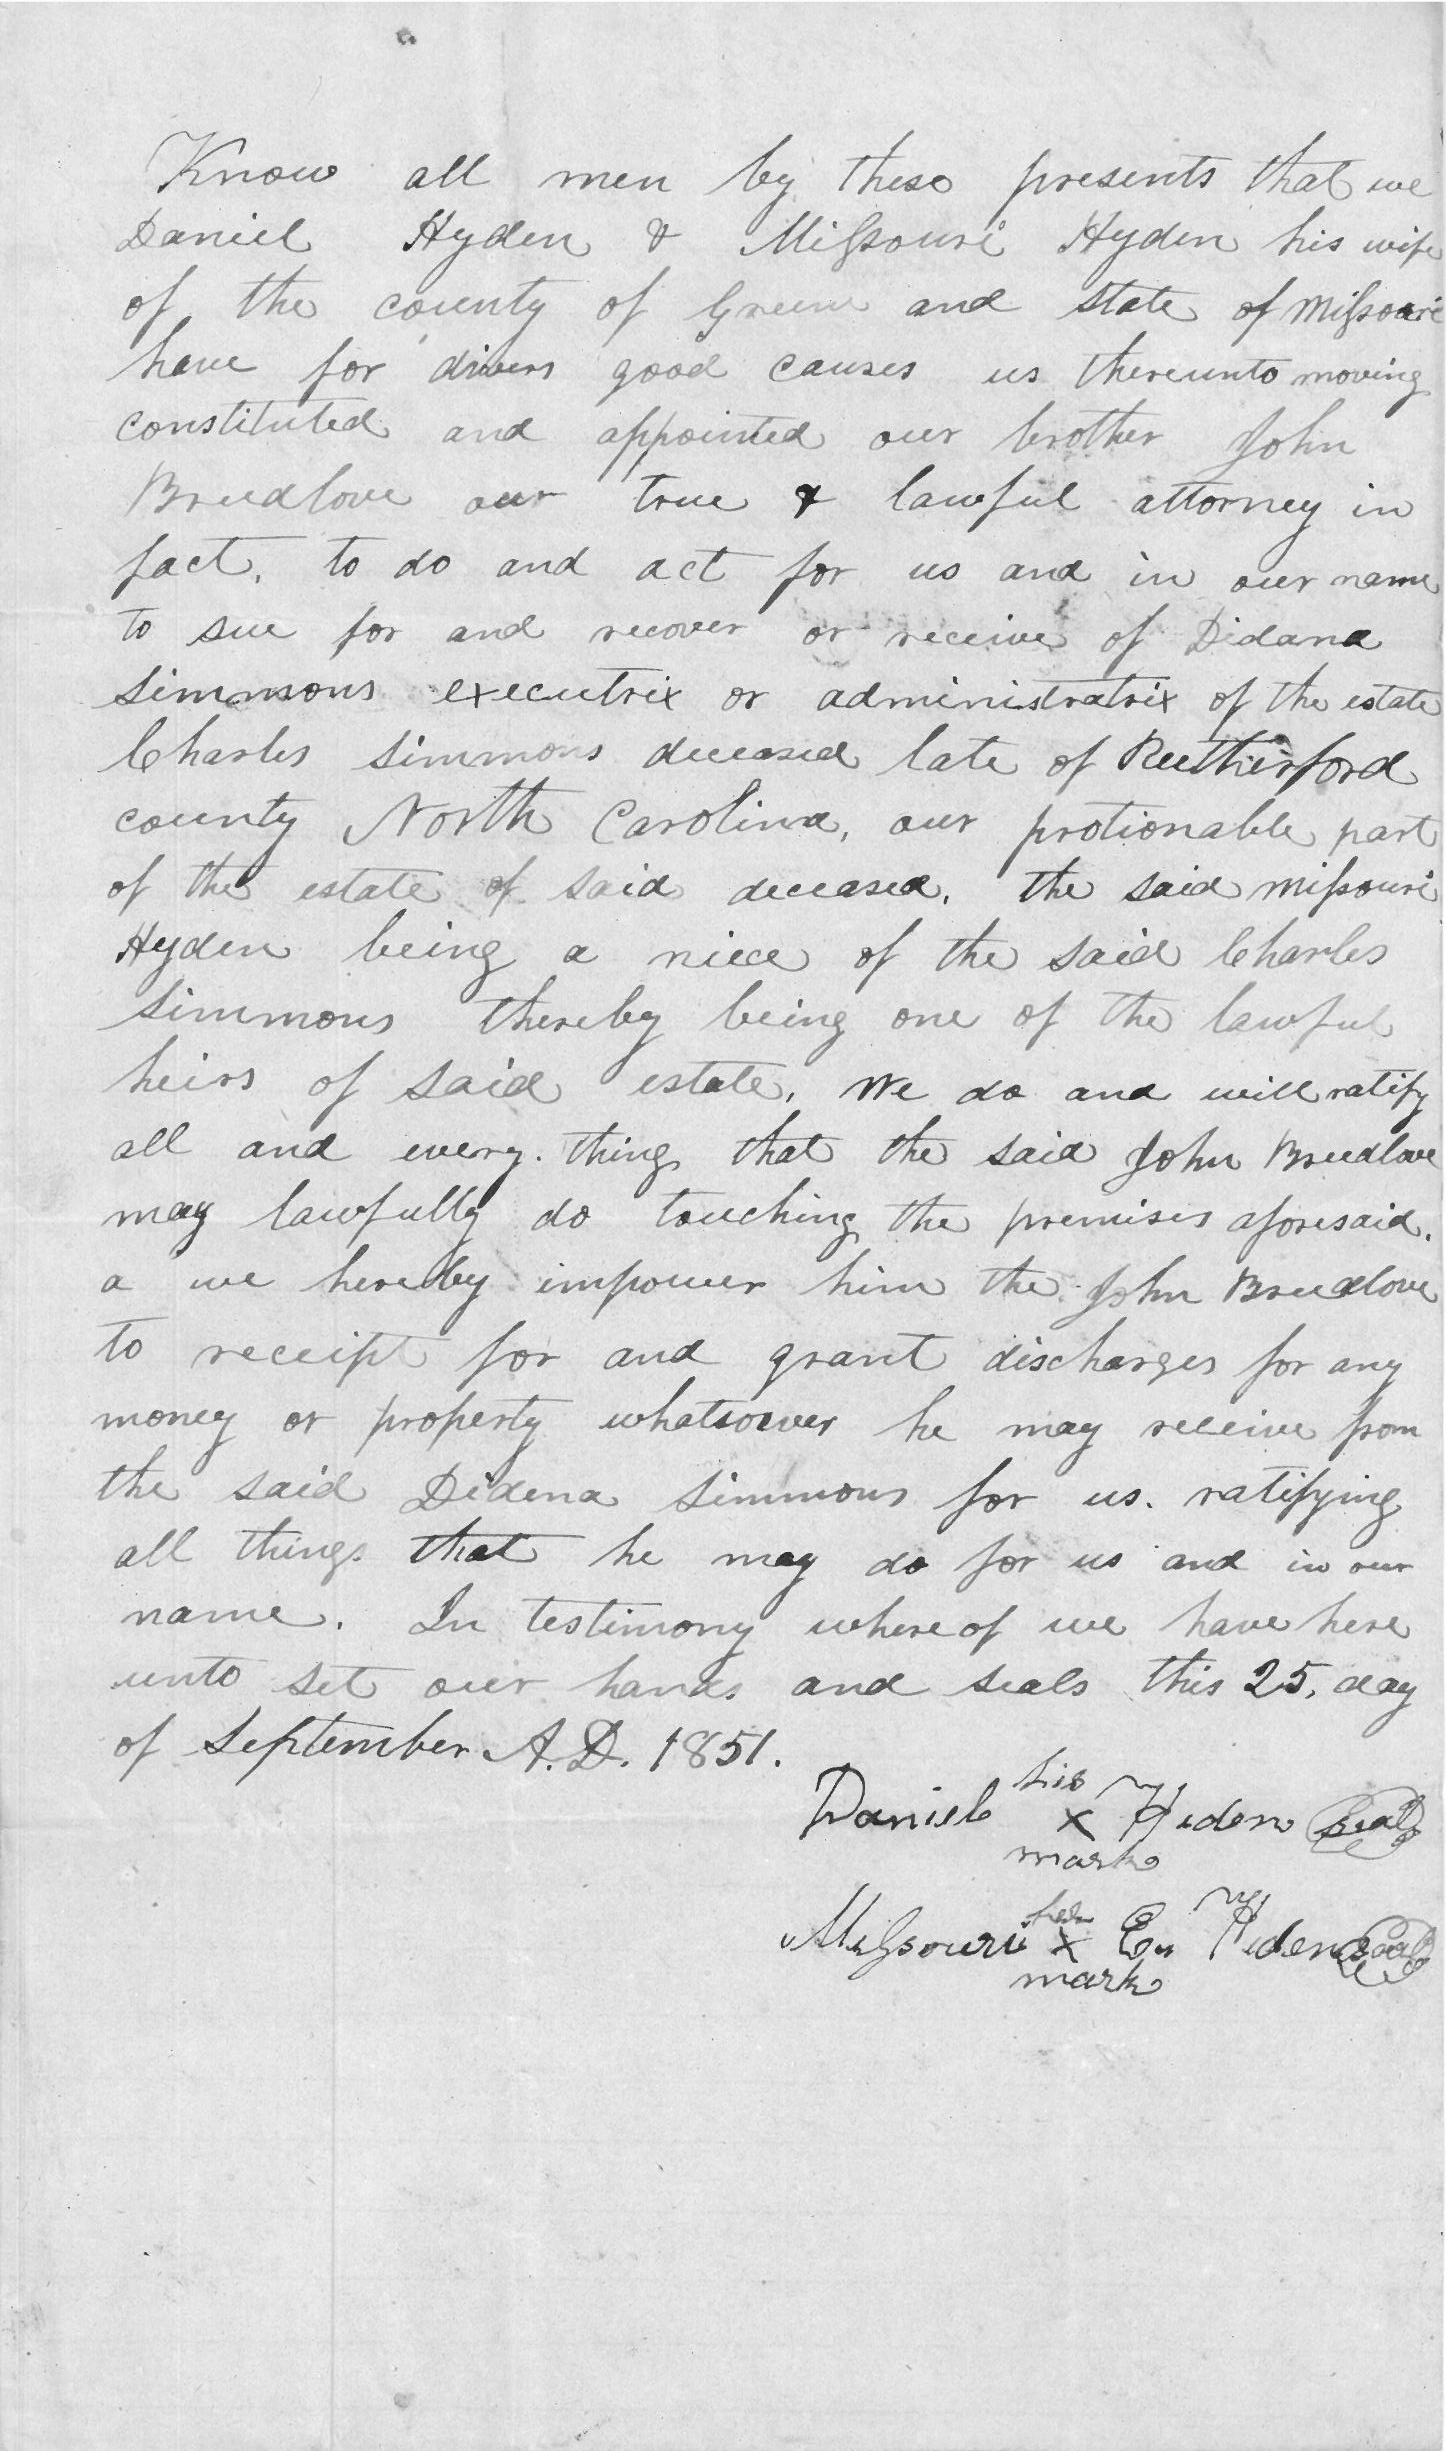 Know all men by these presents that we
Daniel Hyden & Missouri Hyden his wife
of the county of Green and state of Missouri
have for divers good causes us thereunto moving
constituted and appointed our brother John
Breedlove our true & lawful attorney in
fact, to do and act for us and in our name
to sue for and recover or receive of Didana
Simmons executrix or administratrix of the estate
Charles Simmons deceased late of Rutherford
county North Carolina, our protionable part
of the estate of said deceased, the said Missouri
Hyden being a niece of the said Charles
Simmons thereby being one of the lawful
heirs of said estate, We do and will ratify
all and every thing that the said John Breedlove
may lawfully do touching the premises aforesaid.
a we hereby impower him the John Breedlove
to receipt for and grant discharges for any
money or property whatsoever he may receive from
the said Didena Simmons for us. ratifying
all things that he may do for us and in our
name. In testimony whereof we have here
unto set our hands and seals this 25, day
of September A.D. 1851.
his
Daniel x Hiden Seal
mark
her
Missouri x E. Hiden Seal
mark